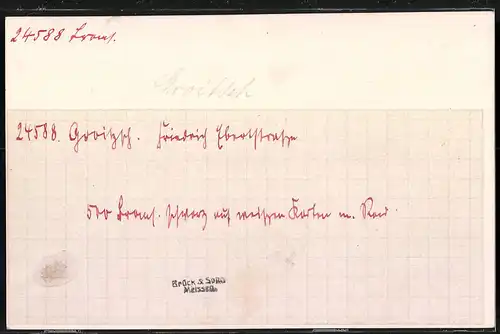 24588 Brom.
Groitzsch
24588. Groitzsch. Friedrich Ebertstraße
500 Brom. schwarz auf weißen Karten m. Rand.
Brück & Sohn
Meissen.